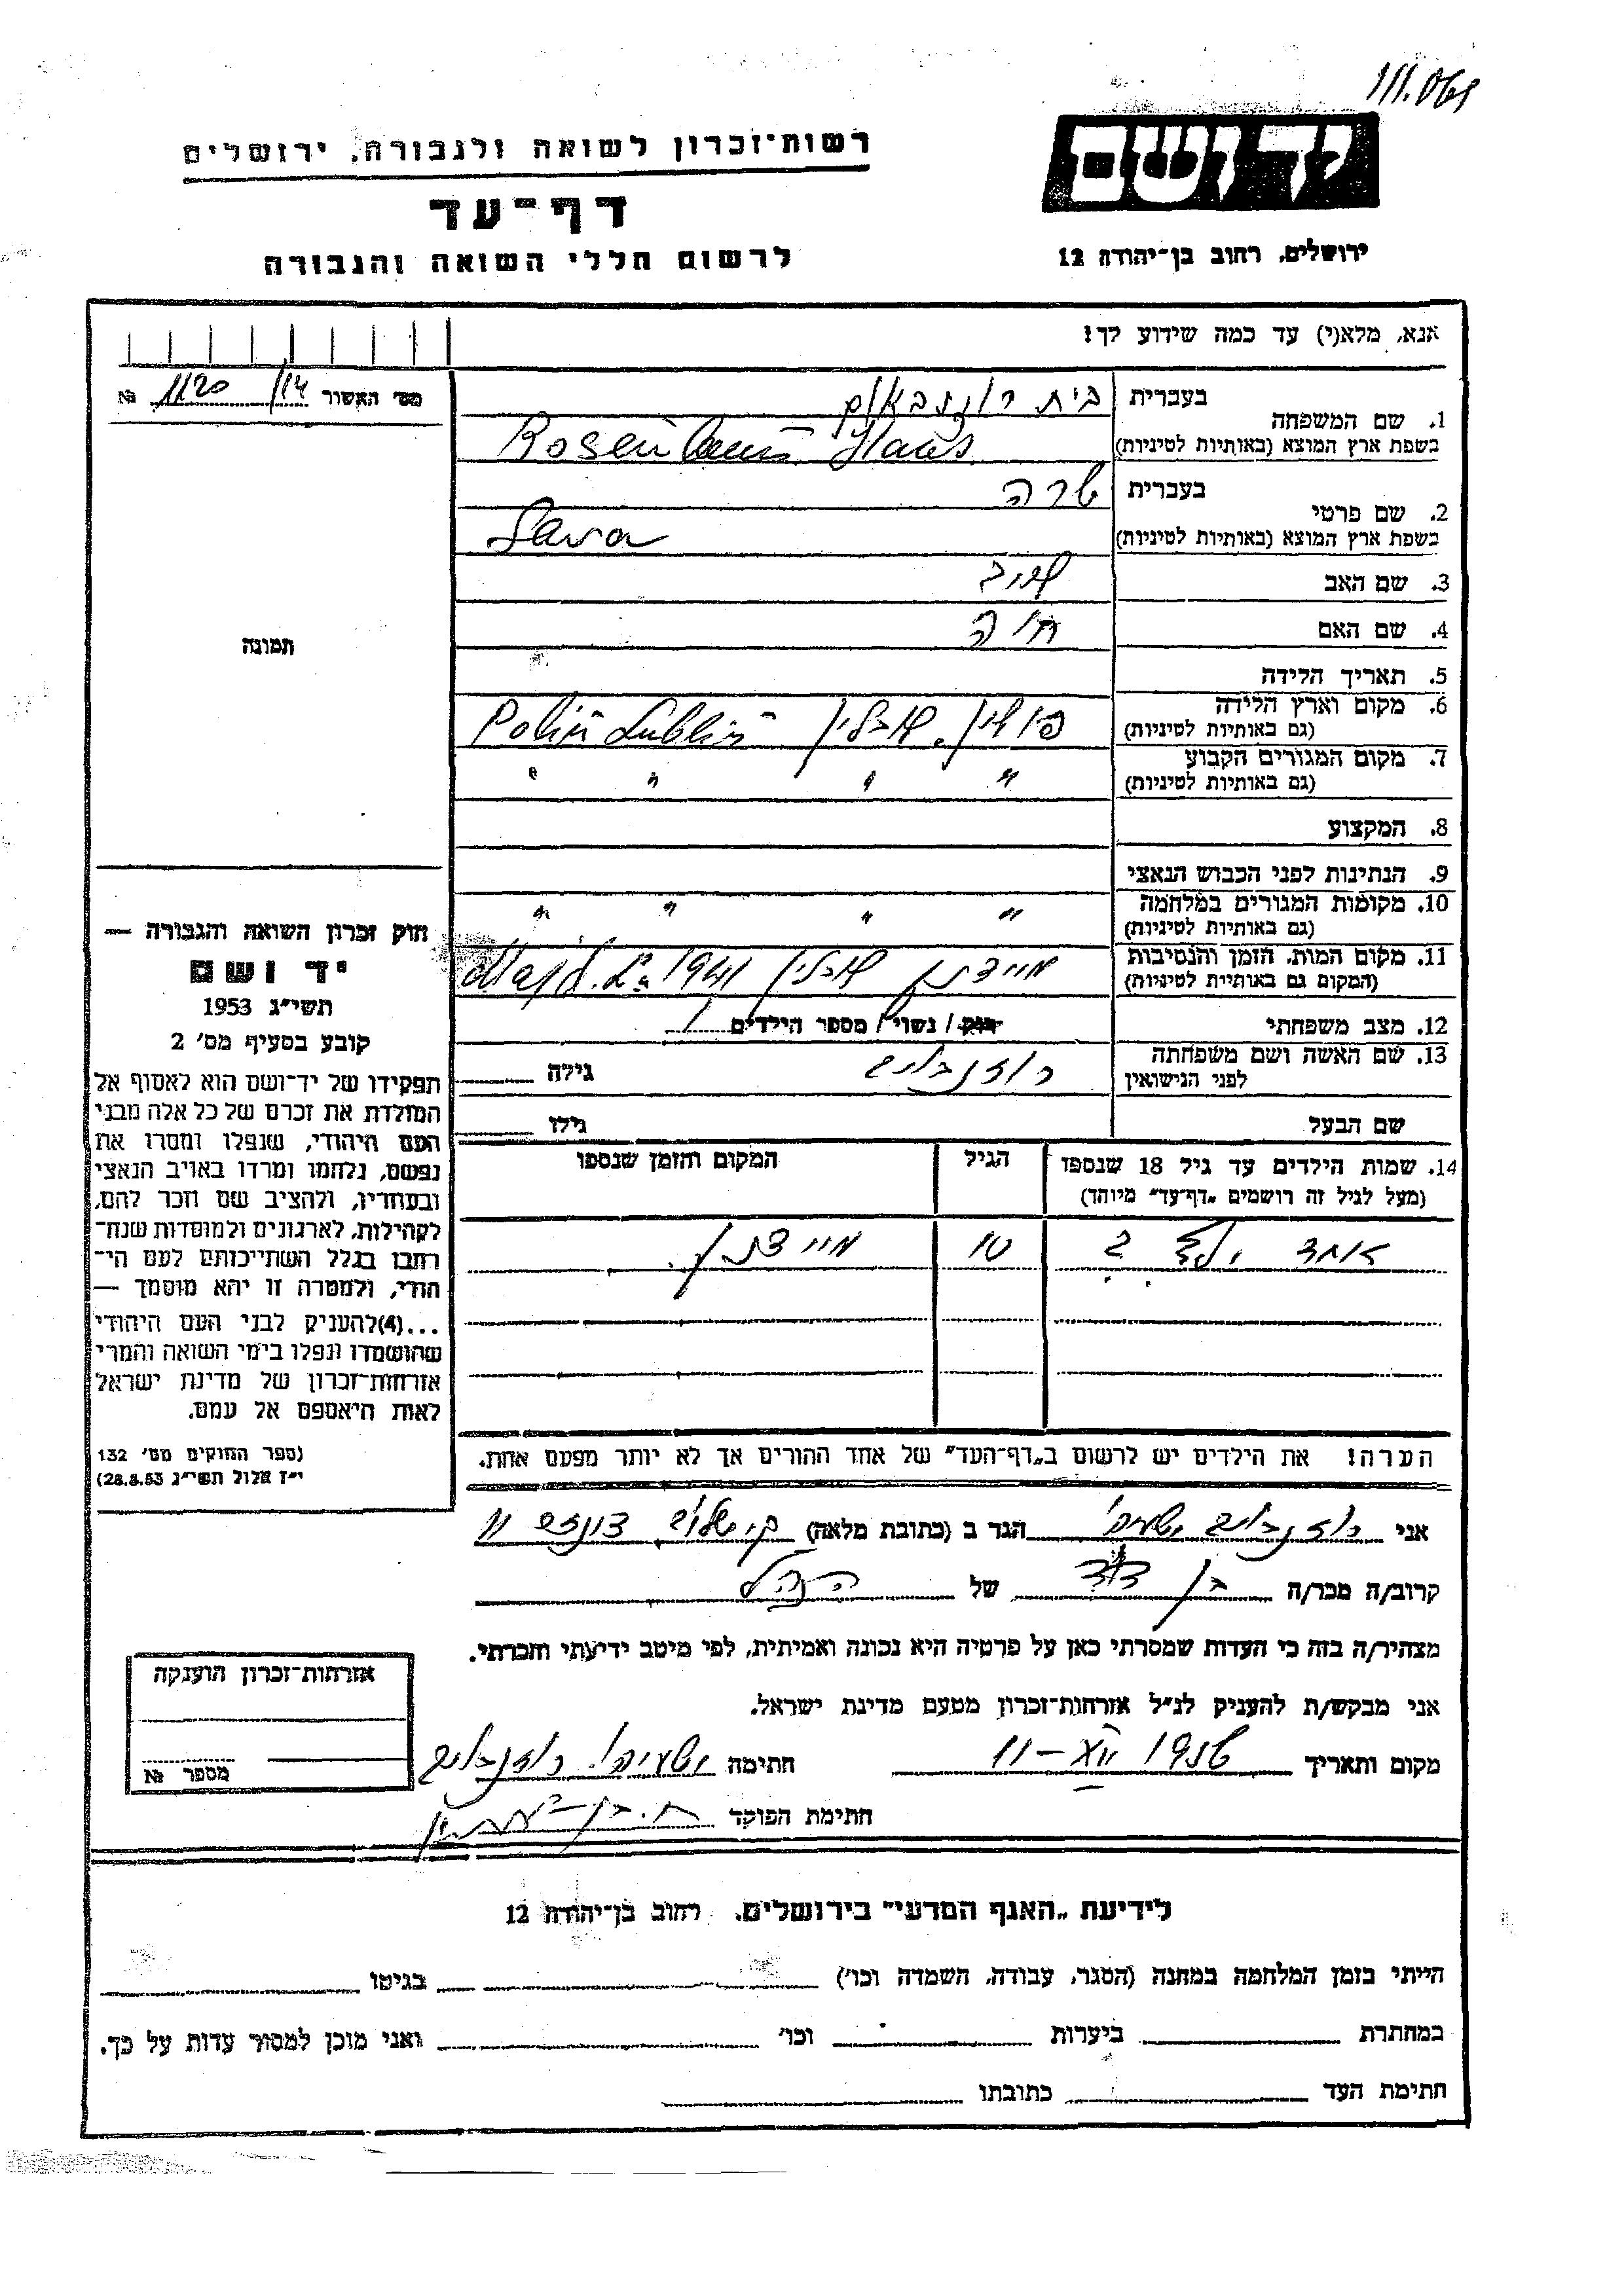 111.069
יד ושם
רשות־זכרון לשואה ולגבורה, ירושלים
דף־עד
לרשום חללי השואה והגבורה
ירושלים, רחוב בן־יהודה 12
אנא, מלא(י) עד כמה שידוע לך!
מס' האשור 114/ 1120 №
תמונה
1. שם המשפחה
בעברית
בית רוזנבאום
בשפת ארץ המוצא (באותיות לטיניות)
Rosenbaum Haus
2. שם פרטי
בעברית
שרה
בשפת ארץ המוצא (באותיות לטיניות)
Sara
3. שם האב
4. שם האם חיה
5. תאריך הלידה
6. מקום וארץ הלידה
(גם באותיות לטיניות)
פולין, לובלין Polin Lublin
7. מקום המגורים הקבוע
(גם באותיות לטיניות)
" " " "
8. המקצוע
9. הנתינות לפני הכבוש הנאצי
10. מקומות המגורים במלחמה
(גם באותיות לטיניות)
" " " "
11. מקום המות, הזמן והנסיבות
(המקום גם באותיות לטיניות)
מיידנק לובלין 1941
12. מצב משפחתי
רוק / נשוי / מספר הילדים 1
13. שם האשה ושם משפחתה
לפני הנישואין
רוזנבלום
גילה
שם הבעל
גילו
14. שמות הילדים עד גיל 18 שנספו
(מעל לגיל זה רושמים „דף־עד" מיוחד)
הגיל
המקום והזמן שנספו
אחד ילד מיידנק
הערה! את הילדים יש לרשום ב„דף־העד" של אחד ההורים אך לא יותר מפעם אחת.
חוק זכרון השואה והגבורה —
יד ושם
תשי"ג 1953
קובע בסעיף מס' 2
תפקידו של יד־ושם הוא לאסוף אל
המולדת את זכרם של כל אלה מבני
העם היהודי, שנפלו ומסרו את
נפשם, נלחמו ומרדו באויב הנאצי
ובעוזריו, ולהציב שם וזכר להם,
לקהילות, לארגונים ולמוסדות שנח־
רבו בגלל השתייכותם לעם הי־
הודי, ולמטרה זו יהא מוסמך —
...(4) להעניק לבני העם היהודי
שהושמדו ונפלו בימי השואה והמרי
אזרחות־זכרון של מדינת ישראל
לאות היאספם אל עמם.
(ספר החוקים מס' 132
י"ז אלול תשי"ג 28.8.53)
אני רוזנבלום הגר ב (כתובת מלאה) 11
קרוב/ה מכר/ה בן דוד של
מצהיר/ה בזה כי העדות שמסרתי כאן על פרטיה היא נכונה ואמיתית, לפי מיטב ידיעתי והכרתי.
אני מבקש/ת להעניק לנ"ל אזרחות־זכרון מטעם מדינת ישראל.
מקום ותאריך 11 – חתימה רוזנבלום
חתימת הפוקד
אזרחות־זכרון הוענקה
מספר №
לידיעת „האגף המדעי" בירושלים, רחוב בן־יהודה 12
הייתי בזמן המלחמה במחנה (הסגר, עבודה, השמדה וכו') בגיטו
במחתרת ביערות וכו' ואני מוכן למסור עדות על כך.
חתימת העד כתובתו